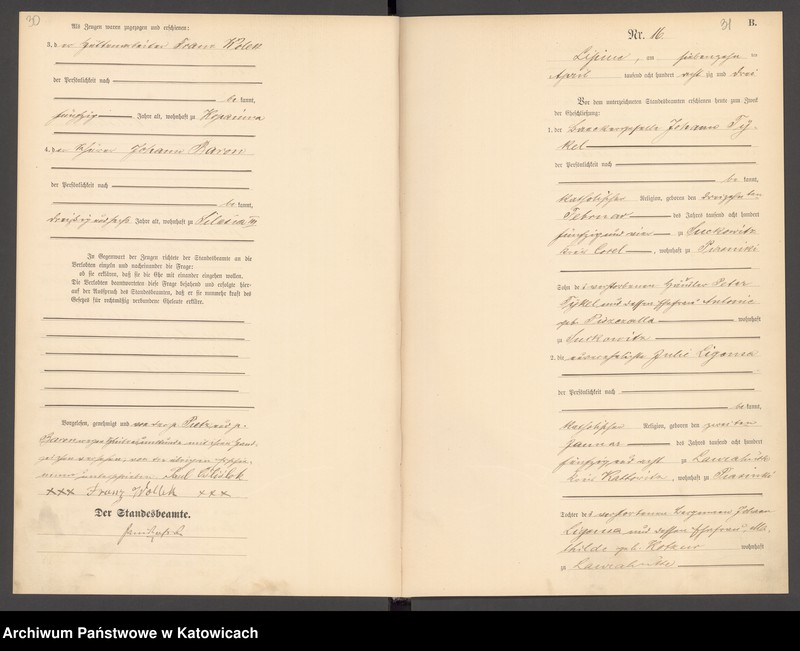 30
Als Zeugen waren zugezogen und erschienen:
3. der Hüttenarbeiter Franz Wollek
der Persönlichkeit nach
be kannt,
fünfzig Jahre alt, wohnhaft zu Kopanina
4. der Johann Baron
der Persönlichkeit nach
be kannt,
dreißig und sechs Jahre alt, wohnhaft zu
In Gegenwart der Zeugen richtete der Standesbeamte an die
Verlobten einzeln und nacheinander die Frage:
ob sie erklären, daß sie die Ehe mit einander eingehen wollen.
Die Verlobten beantworteten diese Frage bejahend und erfolgte hier-
auf der Ausspruch des Standesbeamten, daß er sie nunmehr kraft des
Gesetzes für rechtmäßig verbundene Eheleute erkläre.
Vorgelesen, genehmigt und
Baron wegen mit ihren Hand-
zeichen versehen, von den übrigen Erschie-
nenen unterschrieben Paul
xxx Franz Wollek xxx
Der Standesbeamte.
31
B.
Nr. 16.
Lipine, am siebenzehn ten
April tausend acht hundert acht zig und drei
Vor dem unterzeichneten Standesbeamten erschienen heute zum Zweck
der Eheschließung:
1. der Johann Ty-
kel
der Persönlichkeit nach
be kannt,
katholischer Religion, geboren den dreizehn ten
Februar des Jahres tausend acht hundert
fünfzig und vier zu Suckowitz
Kreis Cosel, wohnhaft zu
Sohn des verstorbenen Händler Peter
Tykel und dessen Ehefrau Antonie
geb. wohnhaft
zu Suckowitz
2. die unverehelichte Julie Ligensa
der Persönlichkeit nach
be kannt,
katholischer Religion, geboren den zweiten
Januar des Jahres tausend acht hundert
fünfzig und acht zu Laurahütte
Kreis Kattowitz, wohnhaft zu
Tochter des verstorbenen Bergmann Johann
Ligensa und dessen Ehefrau Ma-
thilde geb. wohnhaft
zu Laurahütte
Archiwum Państwowe w Katowicach